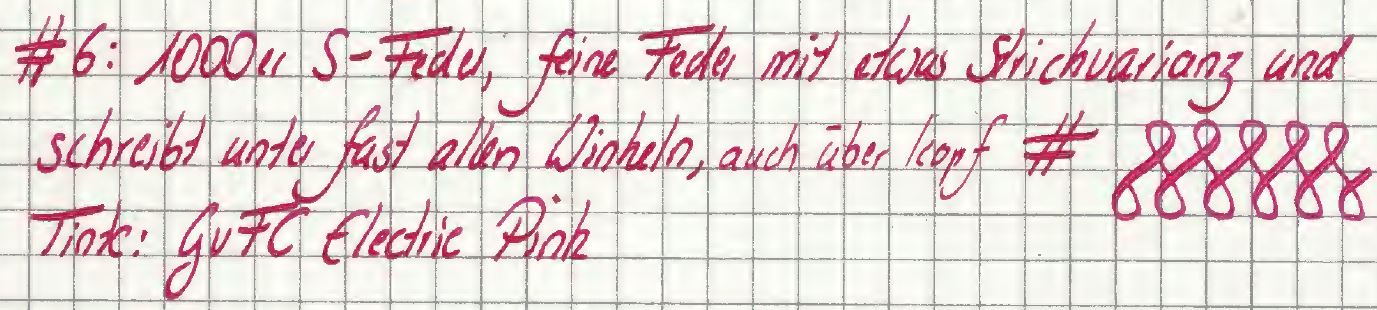 #6: 1000er S-Feder, feine Feder mit etwas Strichvarianz und
schreibt unter fast allen Winkeln, auch über kopf #
Tinte: GvFC Electric Pink